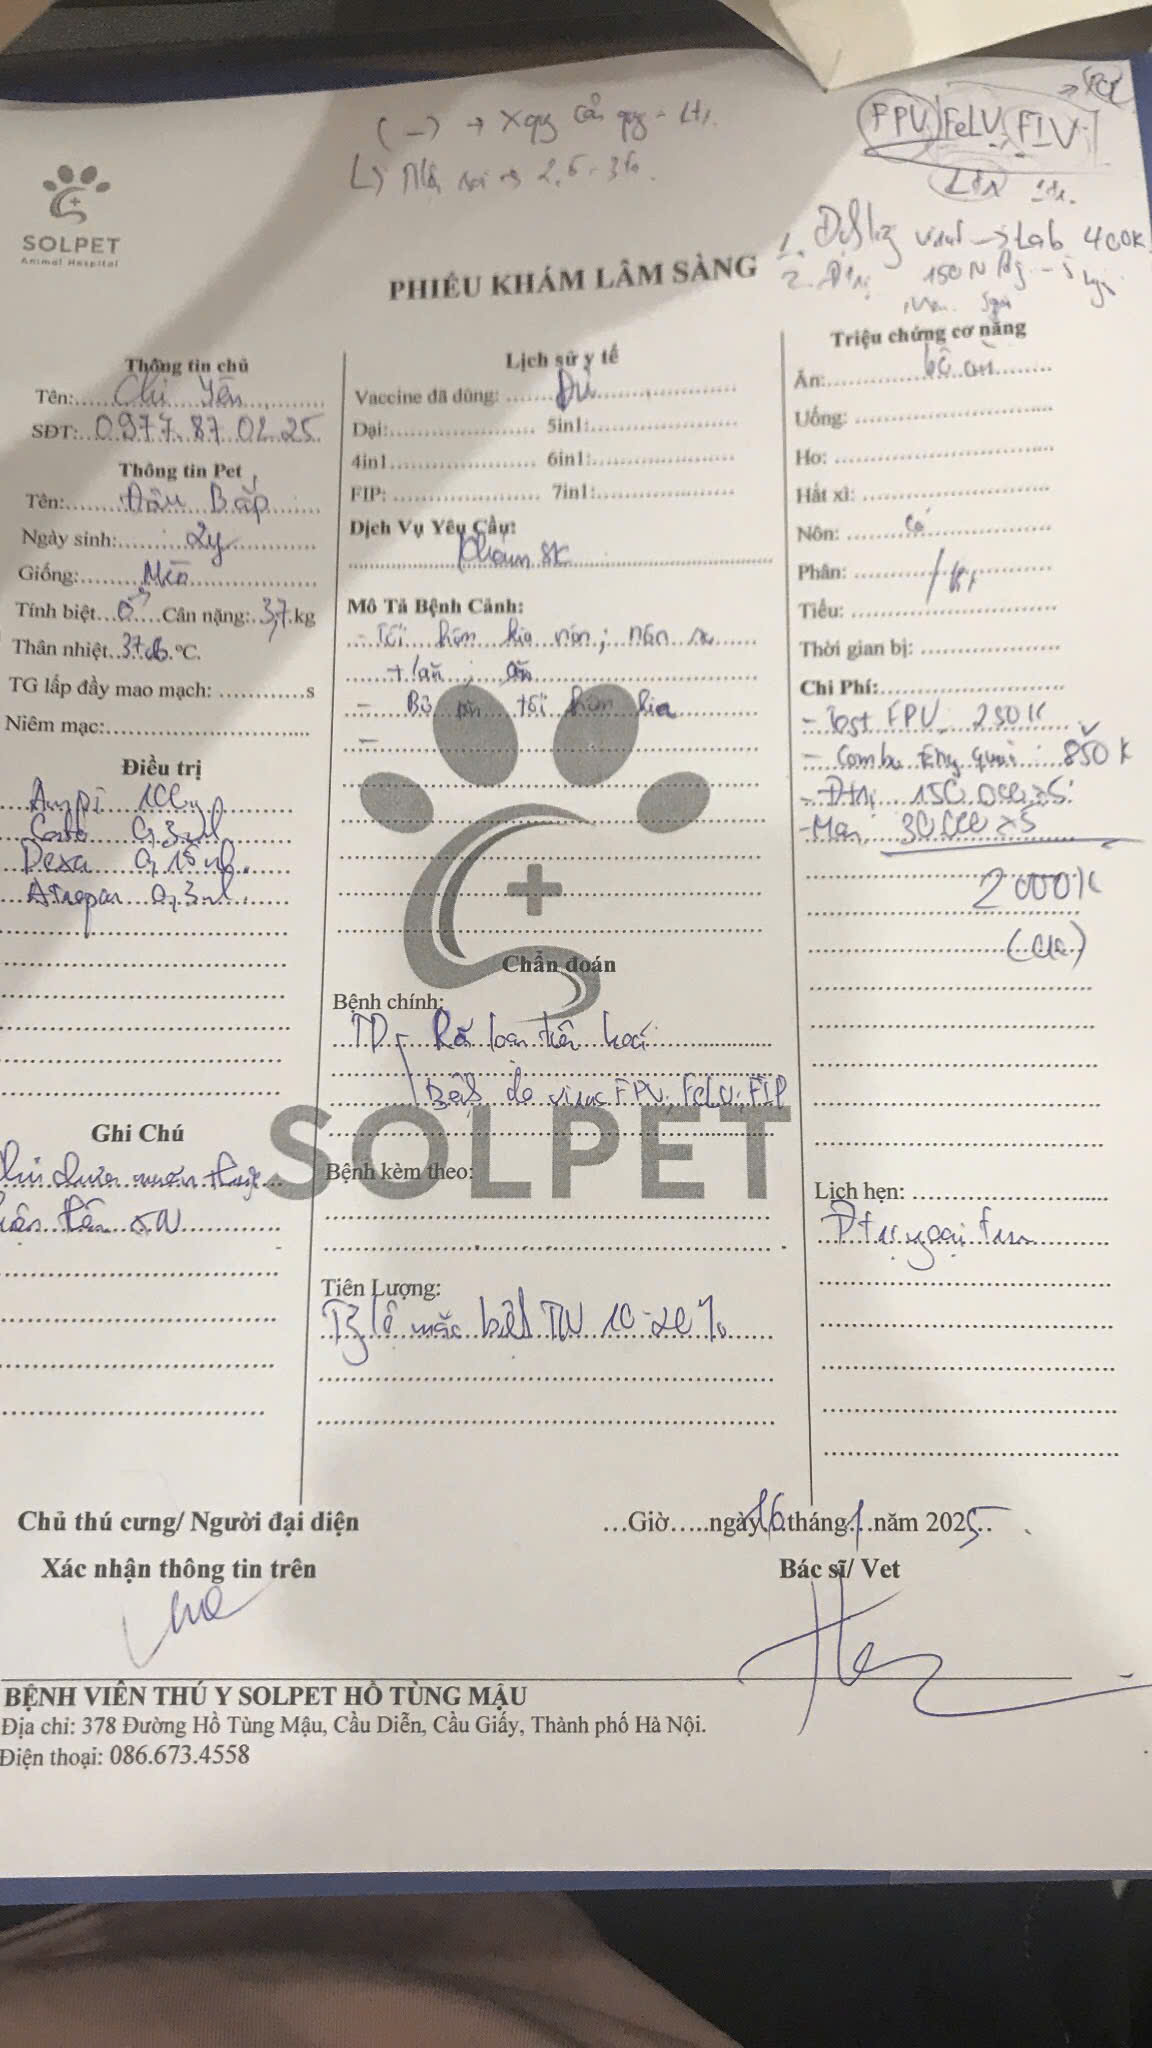 (-) → X quy
FPV FeLV FIV
SOLPET
Animal Hospital
PHIẾU KHÁM LÂM SÀNG
1. → Lab 400K
2. Đtrị 150N
Thông tin chủ
Tên: Chị Yến
SĐT: 0977.87 02 25
Thông tin Pet
Tên: Đậu Bắp
Ngày sinh: 2y
Giống: Mèo
Tính biệt Cân nặng: 3,7 kg
Thân nhiệt 37,6 °C.
TG lấp đầy mao mạch: s
Niêm mạc:
Điều trị
Ampi
0,3ml
Dexa 0,15 ml.
Atropin 0,3ml.
Ghi Chú
xN
Lịch sử y tế
Vaccine đã dùng: Đủ
Dại: 5in1:
4in1 6in1:
FIP: 7in1:
Dịch Vụ Yêu Cầu:
Khám SK
Mô Tả Bệnh Cảnh:
- Tối hôm kia nôn; nôn
- Bỏ ăn tối hôm kia
-
Chẩn đoán
Bệnh chính:
TD - Rối loạn tiêu hoá
Bệnh do virus FPV, FeLV, FIP
SOLPET
Bệnh kèm theo:
Tiên Lượng:
Tỷ lệ mắc bệnh TN 10-20%
Triệu chứng cơ năng
Ăn: bỏ ăn
Uống:
Ho:
Hắt xì:
Nôn: Có
Phân:
Tiểu:
Thời gian bị:
Chi Phí:
- Test FPV: 250K
- Combo 850K
- Đtrị 150.000 x5
30000 x5
2000K
(ck)
Lịch hẹn:
Đtrị ngoại trú
Chủ thú cưng/ Người đại diện
Xác nhận thông tin trên
...Giờ.....ngày 16 tháng 1 năm 2025
Bác sĩ/ Vet
BỆNH VIỆN THÚ Y SOLPET HỒ TÙNG MẬU
Địa chỉ: 378 Đường Hồ Tùng Mậu, Cầu Diễn, Cầu Giấy, Thành phố Hà Nội.
Điện thoại: 086.673.4558